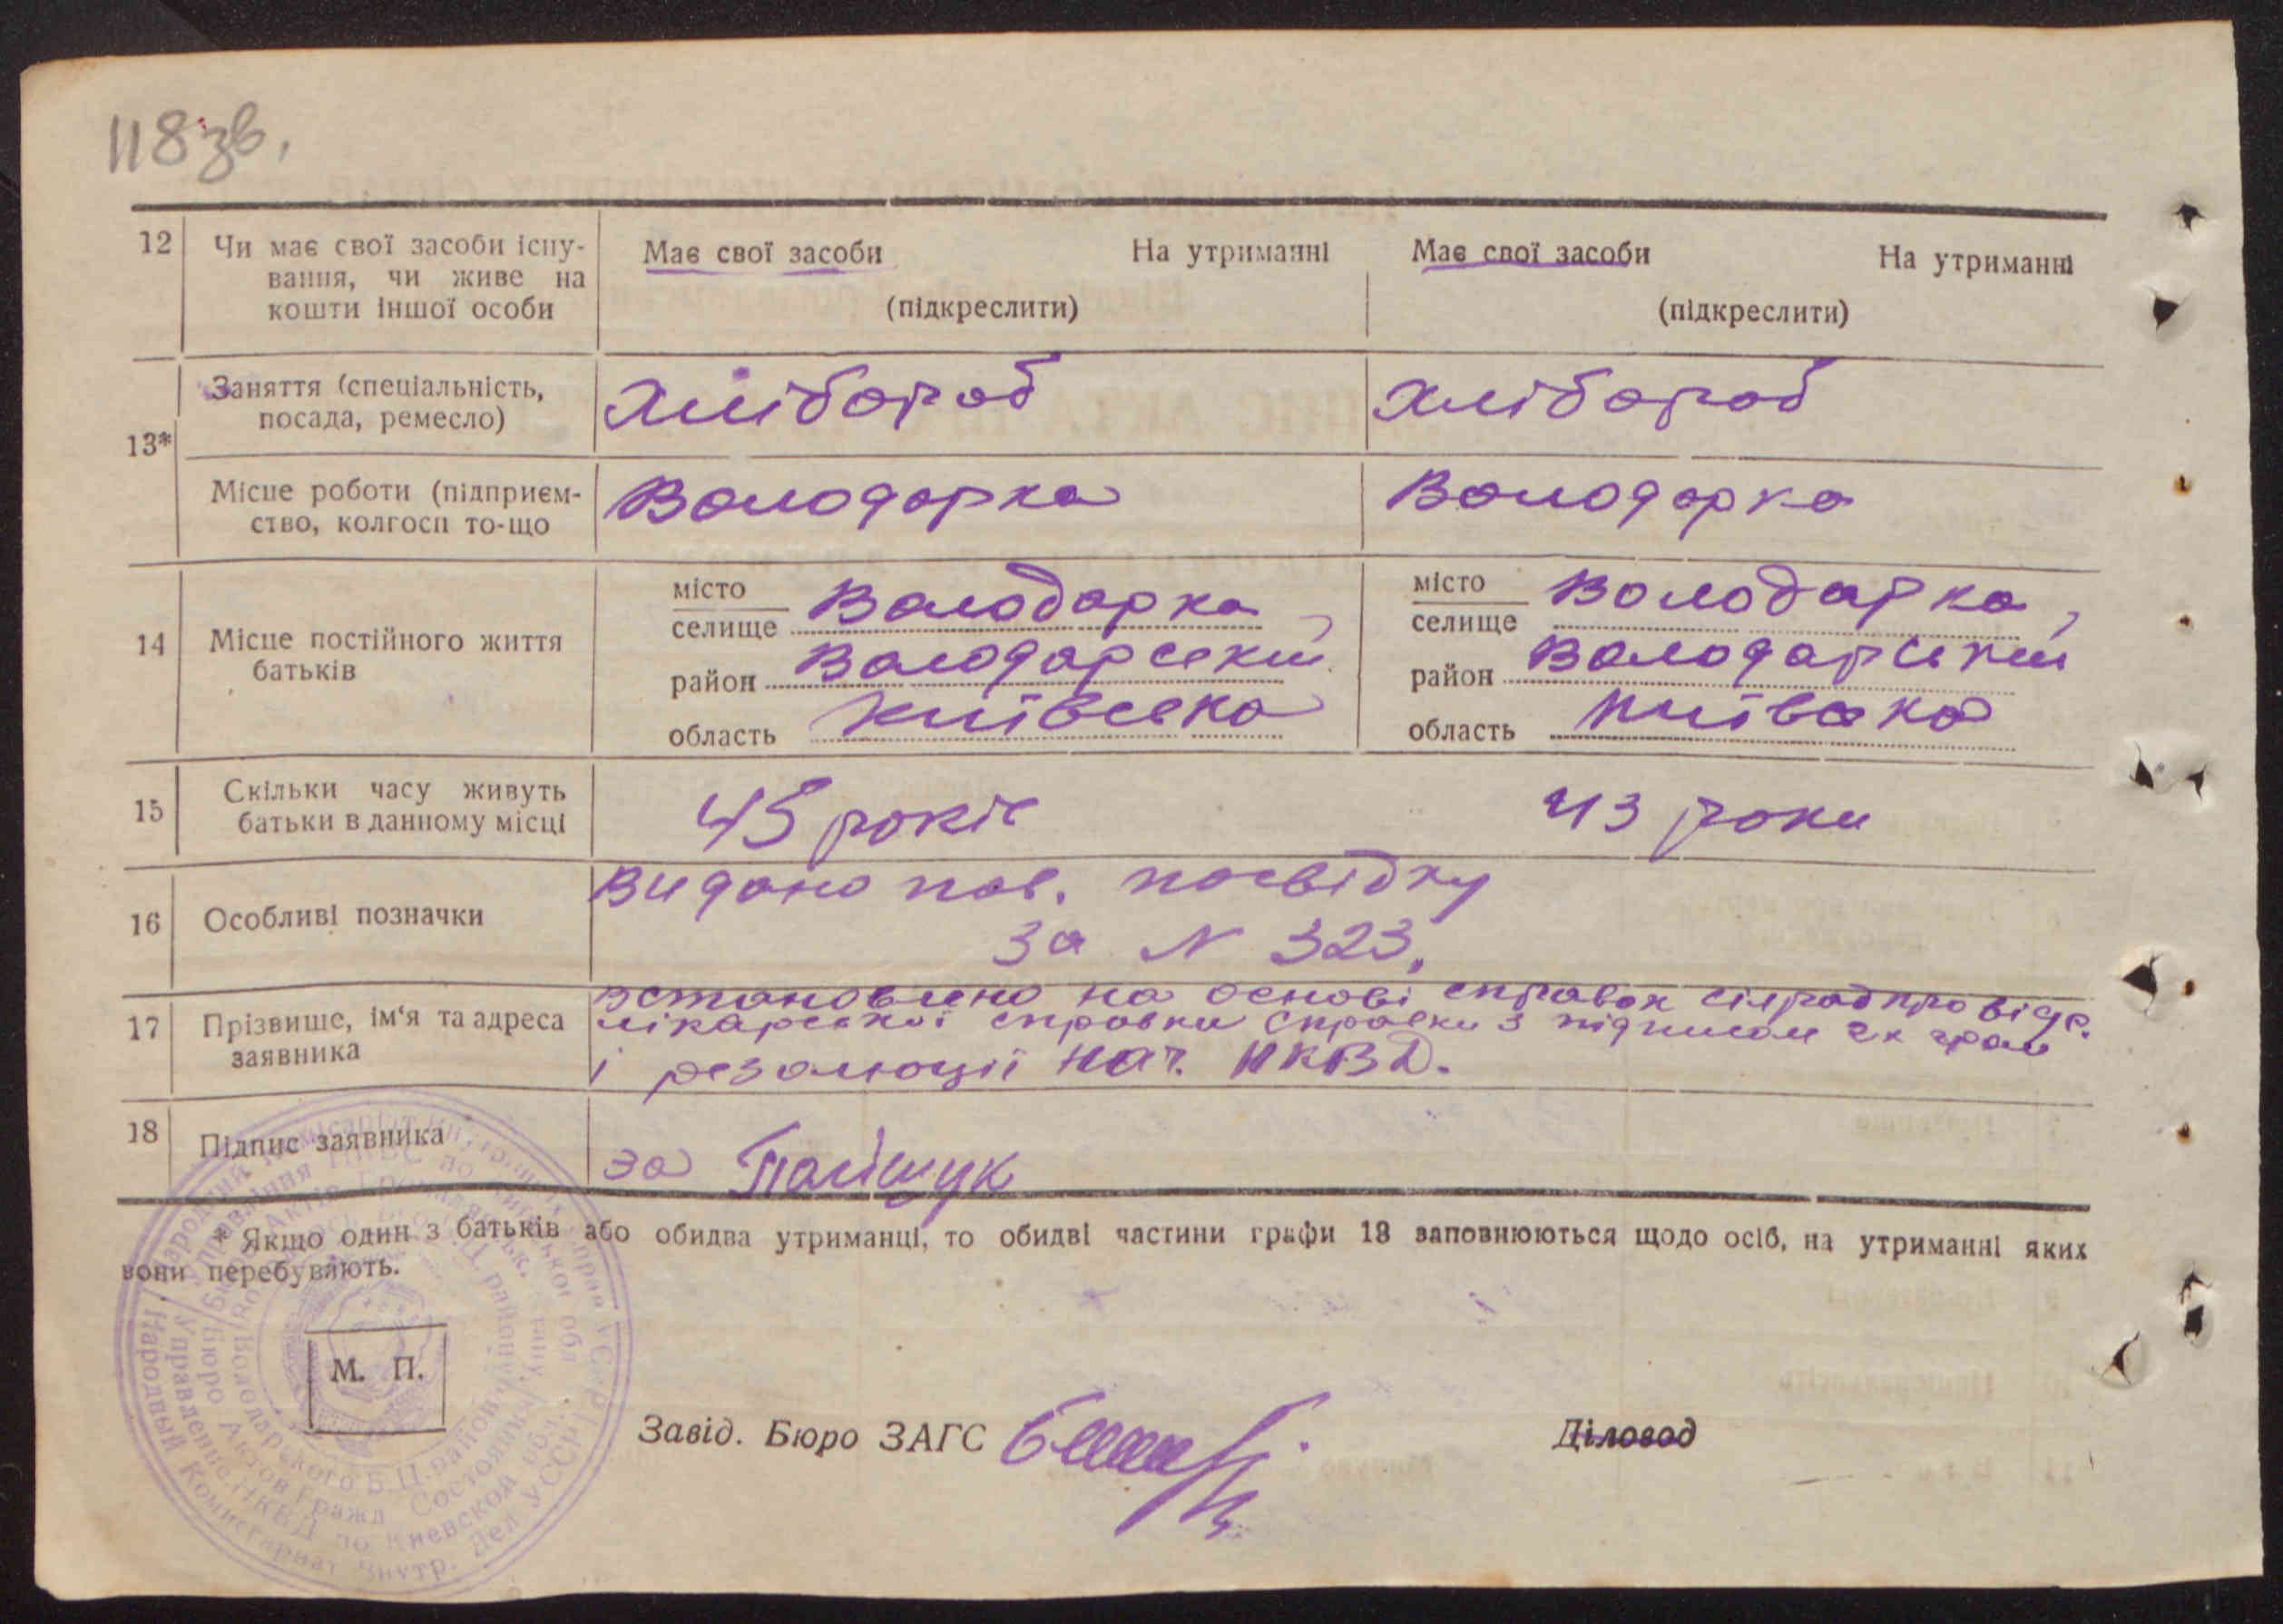 118 зв.
12 Чи має свої засоби існу-
вання, чи живе на
кошти іншої особи
Має свої засоби На утриманні
(підкреслити)
Має свої засоби На утриманні
(підкреслити)
13*
Заняття (спеціальність,
посада, ремесло)
Хлібороб
Хлібороб
Місце роботи (підприєм-
ство, колгосп то-що
Володарка
Володарка
14 Місце постійного життя
батьків
місто
селище Володарка,
район Володарський
область Київська
місто
селище Володарка,
район Володарський
область Київська
15 Скільки часу живуть
батьки в данному місці
45 років
43 роки
16 Особливі позначки
Видано пов. посвідку
за N 323.
17 Прізвище, ім‘я та адреса
заявника
Встановлено на основі справок сілрад про відс.
лікарської справки справки з підписом 2х гром
і резолюції нач. НКВД.
18 Підпис заявника
за Поліщук
* Якщо один з батьків або обидва утриманці, то обидві частини графи 13 заповнюються щодо осіб, на утриманні яких
вони перебувають.
М. П.
Завід. Бюро ЗАГС
Діловод
Народный Комиссариат Внутр. Дел УССР
Управление НКВД по Киевской обл.
Бюро Актов Гражд. Состояния
Володарского Б.Ц. района